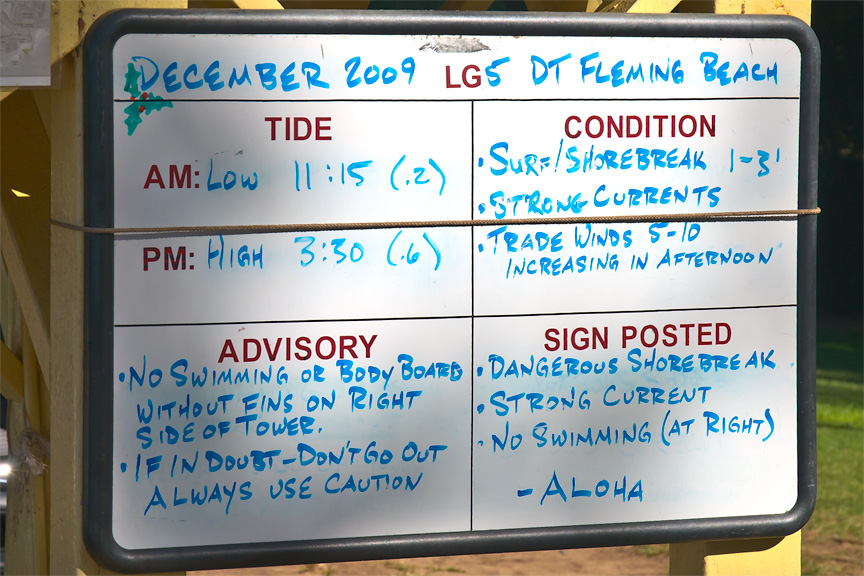 DECEMBER 2009 LG5 DT FLEMING BEACH
TIDE
AM: LOW 11:15 (.2)
PM: HIGH 3:30 (.6)
CONDITION
• SURF/SHOREBREAK 1-3'
• STRONG CURRENTS
• TRADE WINDS 5-10
INCREASING IN AFTERNOON
ADVISORY
• NO SWIMMING OR BODY BOARD
WITHOUT FINS ON RIGHT
SIDE OF TOWER.
• IF IN DOUBT - DON'T GO OUT
ALWAYS USE CAUTION
SIGN POSTED
• DANGEROUS SHOREBREAK
• STRONG CURRENT
• NO SWIMMING (AT RIGHT)
- ALOHA